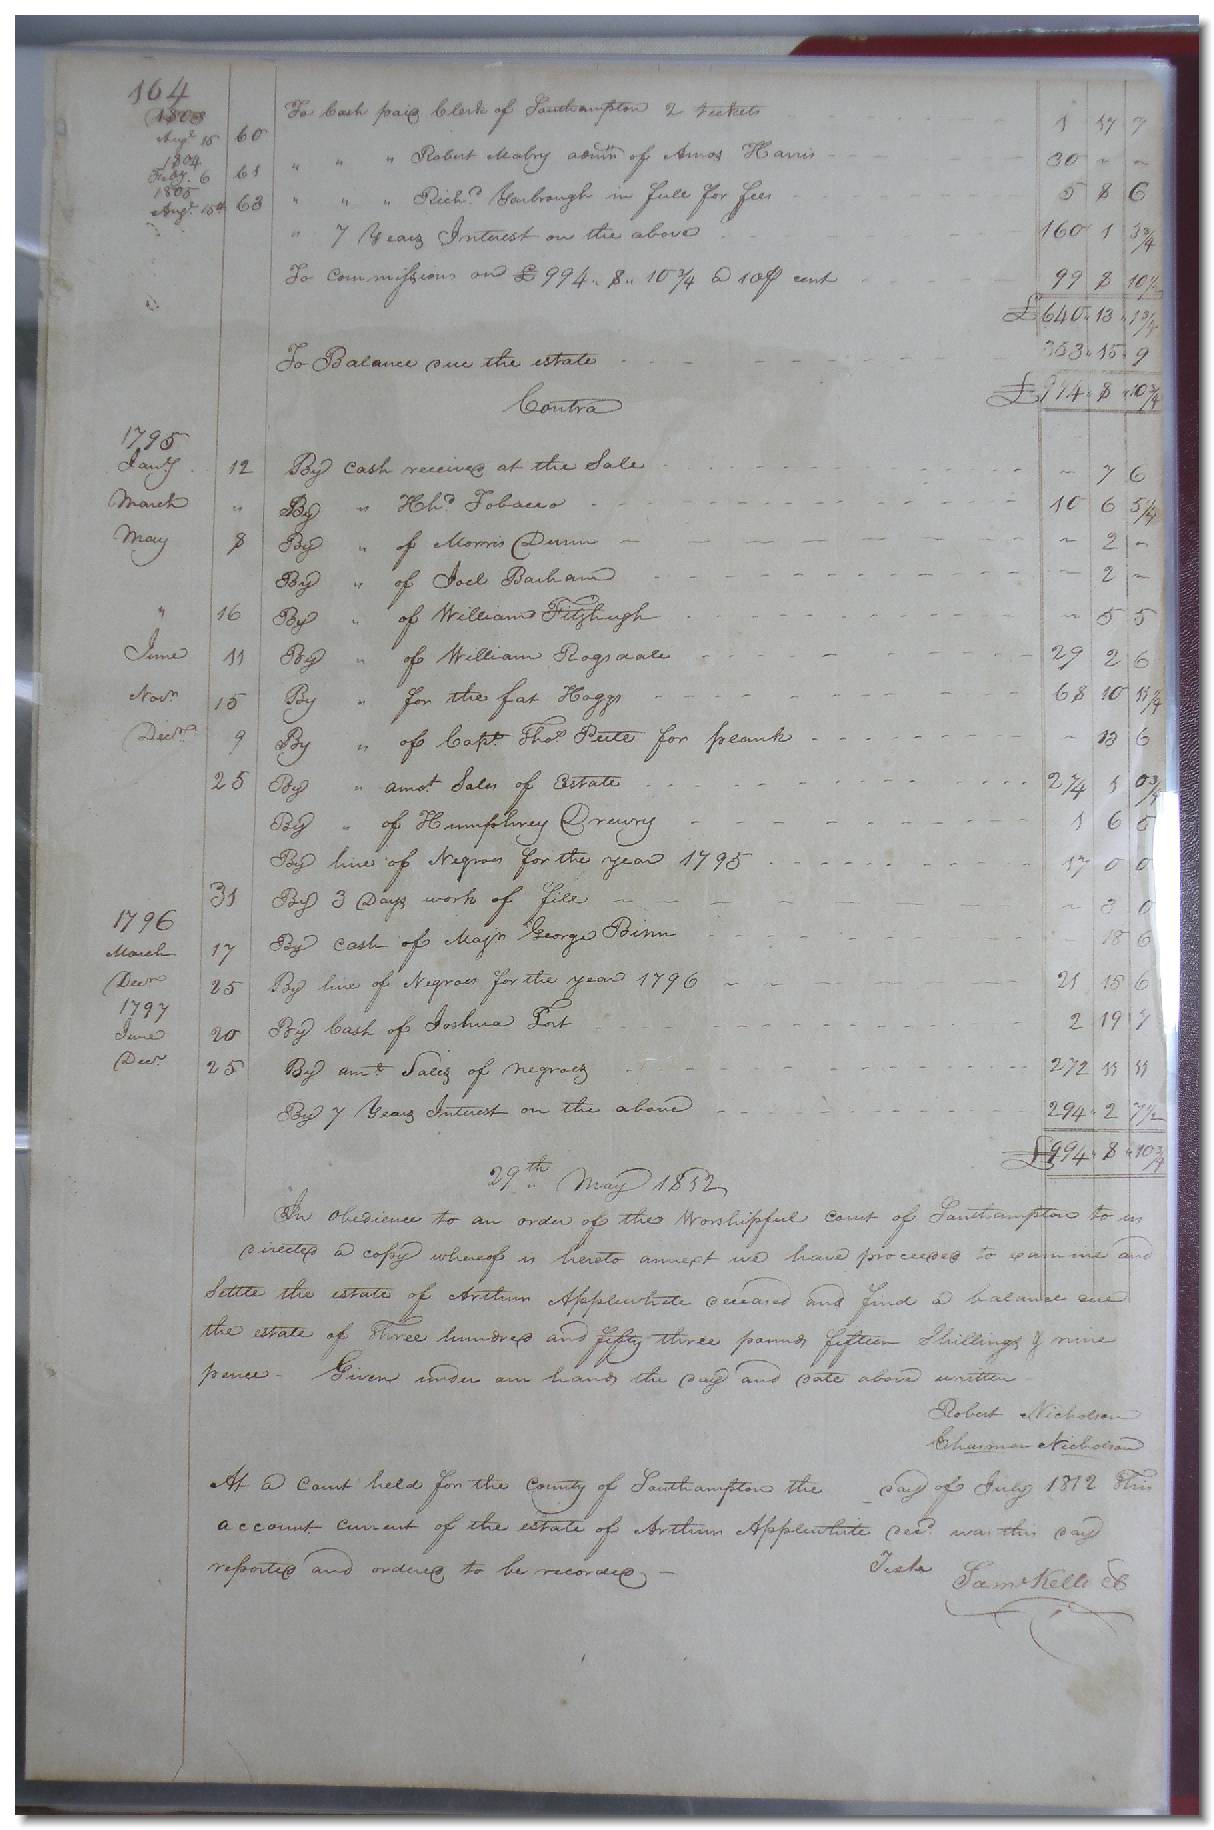 164
1803 Augt 15 60 To Cash paid Clerk of Southampton 2 tickets 1 17 7
1804 Feby. 6 61 " " " Robert Mabry admn of Amos Harris 30 ~ ~
1805 Augt. 15th 63 " " " Richd. Yarbrough in full for fees 5 8 6
" 7 Years Interest on the above 160 1 3¾
To commissions on £994.. 8.. 10¾ @ 10 p cent 99 8 10½
£640.. 13.. 1¾
To Balance due the estate 353.. 15.. 9
£994.. 8.. 10¾
Contra
1795
Jany 12 By cash received at the Sale ~ 7 6
March " By " Hhd Tobacco 10 6 5¼
May 8 By " of Morris Dunn ~ 2 ~
By " of Joel Barham ~ 2 ~
" 16 By " of William Fitzhugh ~ 5 5
June 11 By " of William Rogsdale 29 2 6
Novr. 15 By " for the fat Hoggs 68 10 11¾
Decr. 9 By " of Capt. Thos. Peete for plank ~ 13 6
25 By " amot Sales of Estate 274 1 0¾
By " of Humphrey Drewry 1 6 5
By hire of Negroes for the year 1795 17 0 0
31 By 3 Days work of file ~ 3 0
1796
March 17 By cash of Majr George Binn ~ 18 6
Decr 25 By hire of Negroes for the year 1796 21 18 6
1797
June 20 By Cash of Joshua Fort 2 19 7
Decr. 25 By amt. Sales of negroes 272 11 11
By 7 Years Interest on the above 294.. 2 7½
£994.. 8.. 10¾
29th May 1812
In obedience to an order of the Worshipful court of Southampton to us
directed a copy whereof is hereto annext we have proceeded to examine and
Settle the estate of Arthur Applewhite deceased and find a balance due
the estate of Three hundred and fifty three pounds fifteen Shillings & nine
pence - Given under our hands the day and date above written -
Robert Nicholson
Nicholson
At a Court held for the County of Southampton the day of July 1812 This
account current of the estate of Arthur Applewhite decd. was this day
reported and ordered to be recorded - Teste Saml Kello CC